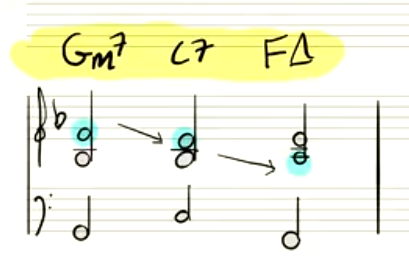 Gm7 C7 FΔ